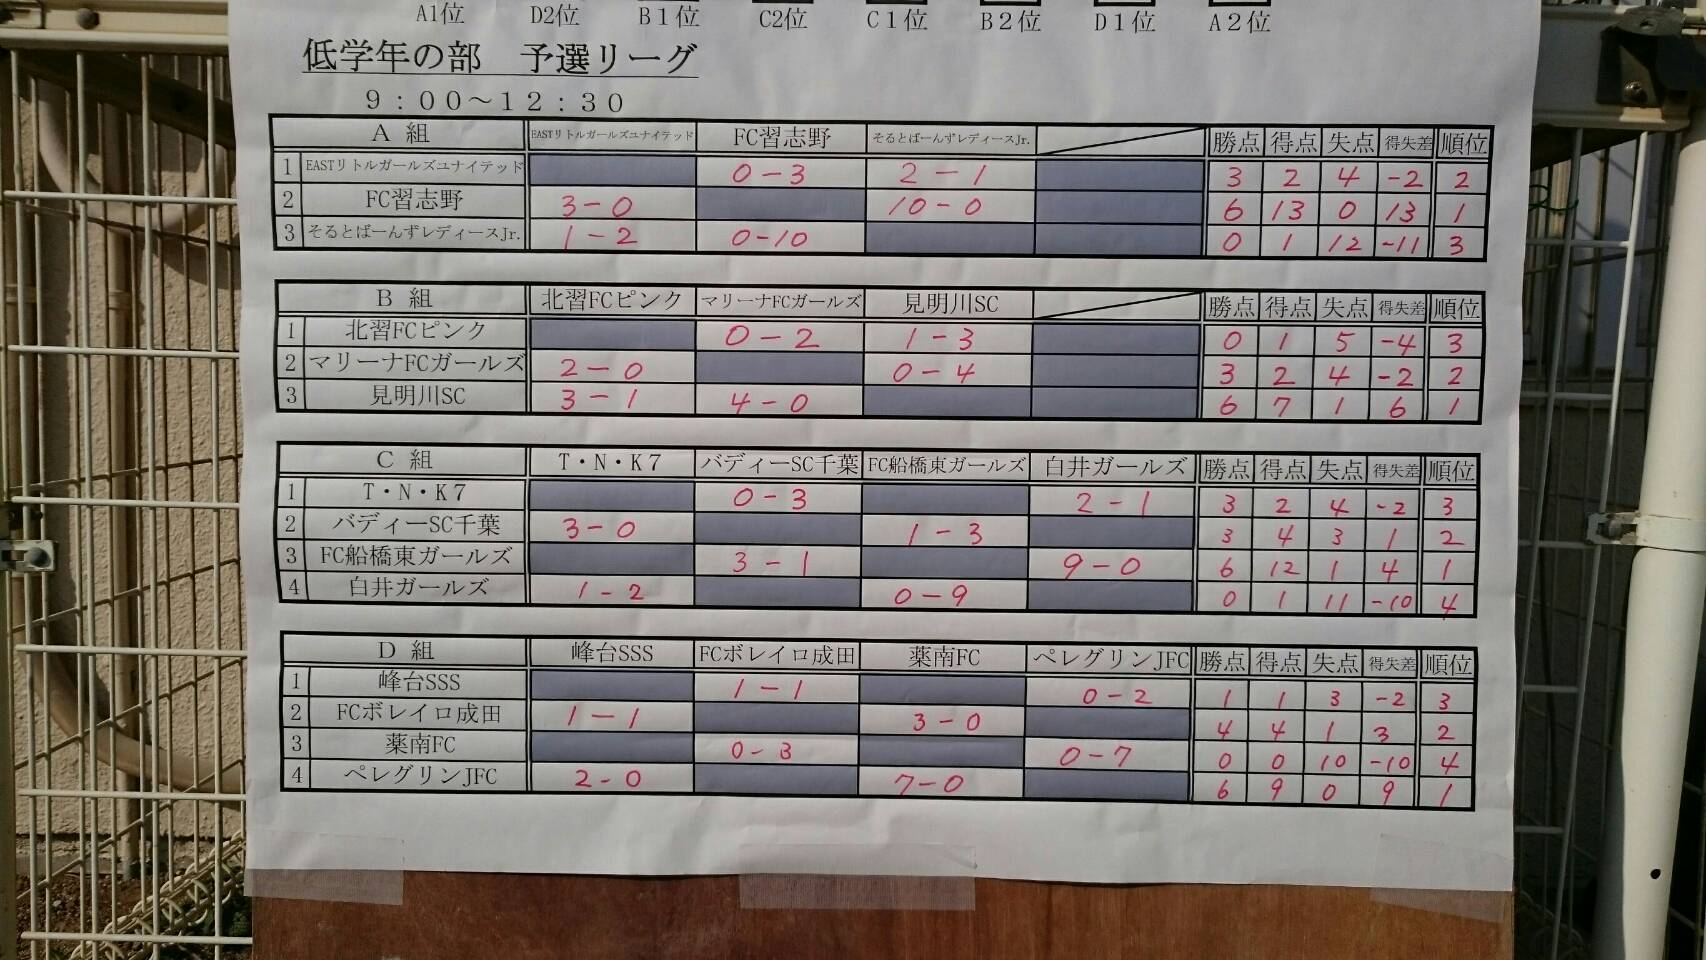 A1位 D2位 B1位 C2位 C1位 B2位 D1位 A2位
低学年の部 予選リーグ
9:00〜12:30
A 組 EASTリトルガールズユナイテッド FC習志野 そるとばーんずレディースJr. 勝点 得点 失点 得失差 順位
1 EASTリトルガールズユナイテッド 0-3 2-1 3 2 4 -2 2
2 FC習志野 3-0 10-0 6 13 0 13 1
3 そるとばーんずレディースJr. 1-2 0-10 0 1 12 -11 3
B 組 北習FCピンク マリーナFCガールズ 見明川SC 勝点 得点 失点 得失差 順位
1 北習FCピンク 0-2 1-3 0 1 5 -4 3
2 マリーナFCガールズ 2-0 0-4 3 2 4 -2 2
3 見明川SC 3-1 4-0 6 7 1 6 1
C 組 T・N・K7 バディーSC千葉 FC船橋東ガールズ 白井ガールズ 勝点 得点 失点 得失差 順位
1 T・N・K7 0-3 2-1 3 2 4 -2 3
2 バディーSC千葉 3-0 1-3 3 4 3 1 2
3 FC船橋東ガールズ 3-1 9-0 6 12 1 4 1
4 白井ガールズ 1-2 0-9 0 1 11 -10 4
D 組 峰台SSS FCボレイロ成田 薬南FC ペレグリンJFC 勝点 得点 失点 得失差 順位
1 峰台SSS 1-1 0-2 1 1 3 -2 3
2 FCボレイロ成田 1-1 3-0 4 4 1 3 2
3 薬南FC 0-3 0-7 0 0 10 -10 4
4 ペレグリンJFC 2-0 7-0 6 9 0 9 1